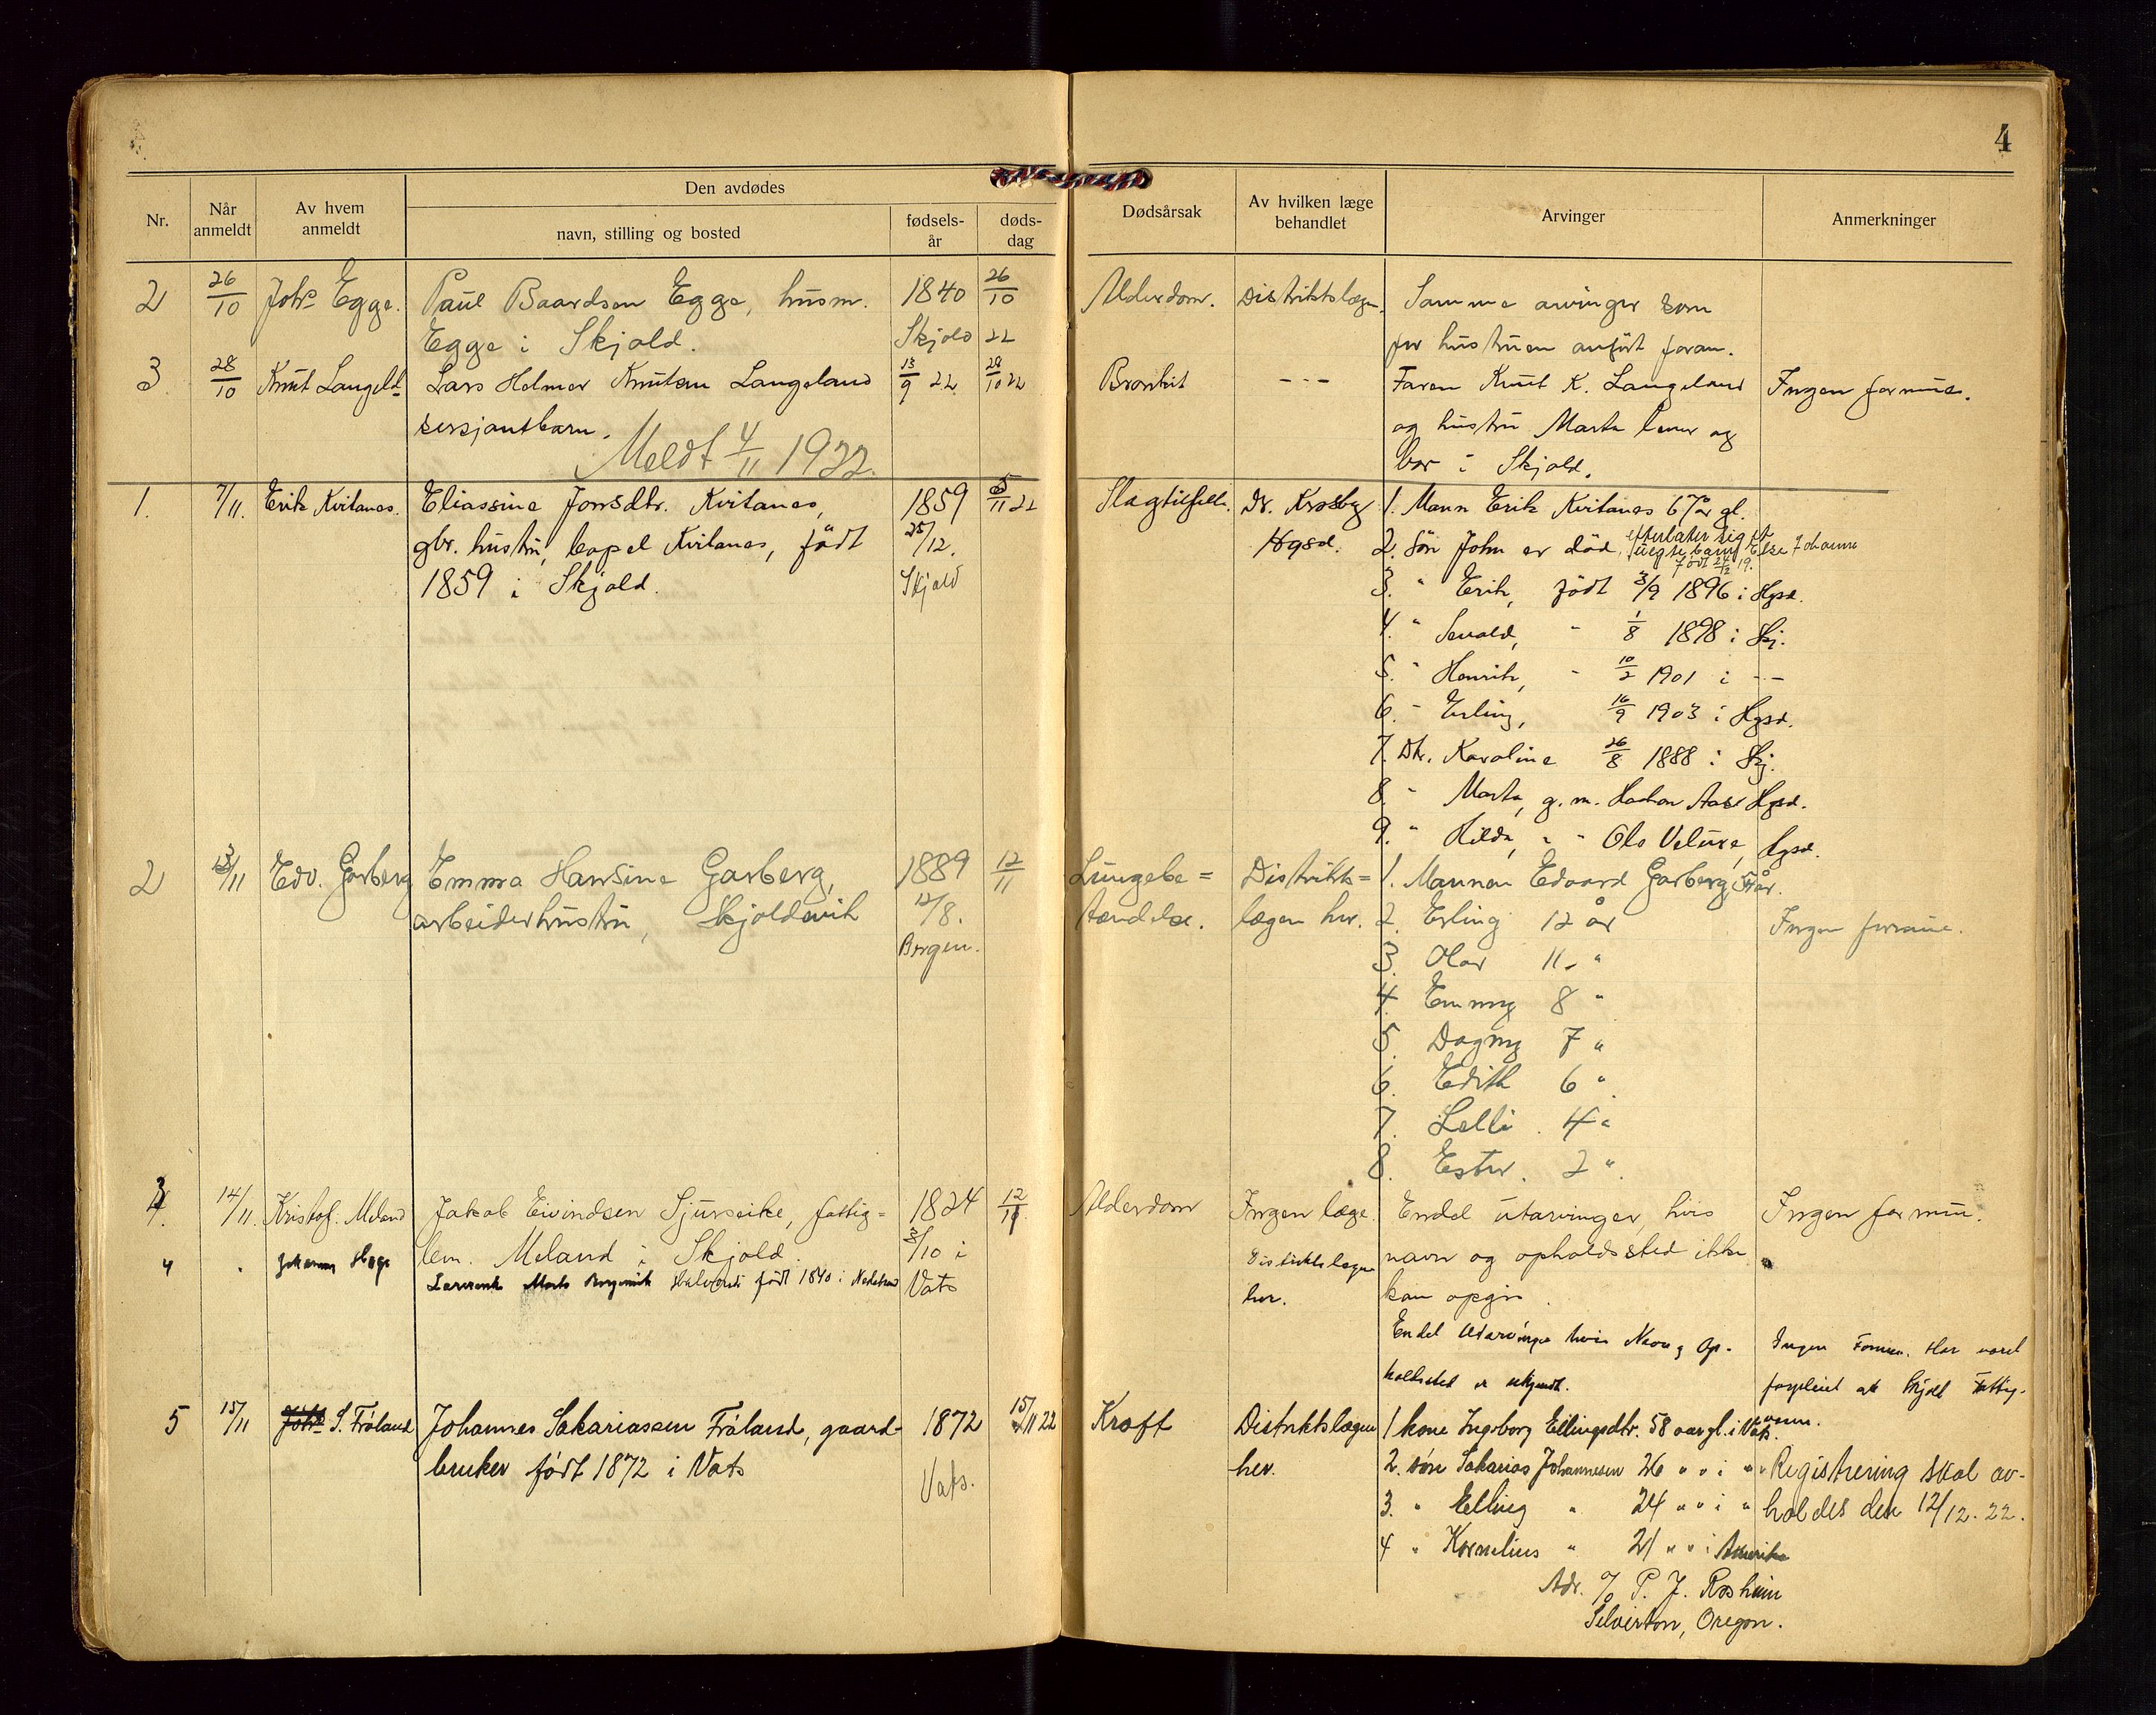 4
Nr.
Når anmeldt
Av hvem anmeldt
Den avdødes
navn, stilling og bosted
fødsels-år
døds-dag
Dødsårsak
Av hvilken læge behandlet
Arvinger
Anmerkninger
2 26/10 Johs Egge. Paul Baardsen Egge, husm. 1840 26/10 Alderdom. Distriktslægen. Samme arvinger som
Egge i Skjold. Skjold 22 for hustruen anført foran.
3 28/10 Knut Langeld. Lars Helmer Knutsen Langeland 13/9 22 28/10 22 Bronkit - - - Faren Knut K. Langeland Ingen formue.
sersjantbarn. og hustru Marta lever og
Meldt 4/11 1922. bor i Skjold.
1. 7/11. Erik Kvitanes. Eliassine Jonsdtr. Kvitanes, 1859 5/11 22 Slagtilfelle. Dr. Krosby 1. Mann Erik Kvitanes 67 år gl.
gbr. hustru, Copel Kvitanes, født 25/12. Hgsd. 2. Søn John er død, efterlater sig et
uegte barn Else Johanne
født 24/12 19.
1859 i Skjold. Skjold 3. " Erik, født 3/9 1896 i Hgsd.
4. " Sevald, " 1/8 1898 i Skj.
5. " Henrik, " 10/2 1901 i - -
6. " Erling, 16/9 1903 i Hgsd.
7. Dtr. Karoline 26/8 1888 i Skj.
8. " Marta, g. m. Haakon Aase Hgsd.
9. " Hilda, " " Ole Velure, Hgsd.
2 13/11 Edv. Garberg Emma Hansine Garberg, 1889 12/11 Lungebe= Distrikts= 1. Mannen Edvard Garberg, år.
arbeiderhustru, Skjoldevik 12/8. tændelse. lægen her. 2. Erling 12 år Ingen formue.
Bergen. 3. Olav 11 "
4. Emmy 8 "
5. Dagny 7 "
6. Edith 6 "
7. Lelli 4 "
8. Ester. 2 "
3. 14/11. Kristof. Meland Jakob Eivindsen Sjurseike, fattig= 1824 12/11 Alderdom Ingen læge. Endel utarvinger, hvis Ingen formue.
lem. Meland i Skjold. 3/10 i navn og opholdssted ikke
4 " Johannes Hage Marta født 1840 i Nedstrand Vats Distriktslægen her. kan opgis.
Endel Utarvinger hvis Navn og Op- Ingen Formue. Har været
holdssted er ukjendt. forpleiet av Skjold Fattig-
væsen.
5 15/11 Johs S. Frøland Johannes Sakariassen Frøland, gaard- 1872 15/11 22 Kræft Distriktslægen 1 kone Ingeborg Ellingsdtr. 58 aar gl. i Vats.
bruker født 1872 i Vats Vats. her. 2. søn Sakarias Johannesen 26 " " i " Registrering skal av-
3. " Elling " 24 " " i " holdes den 12/12. 22.
4 " Kornelius " 21 " " i Amerika
Adr. c/o P. J. Rosheim
Silverton, Oregon.